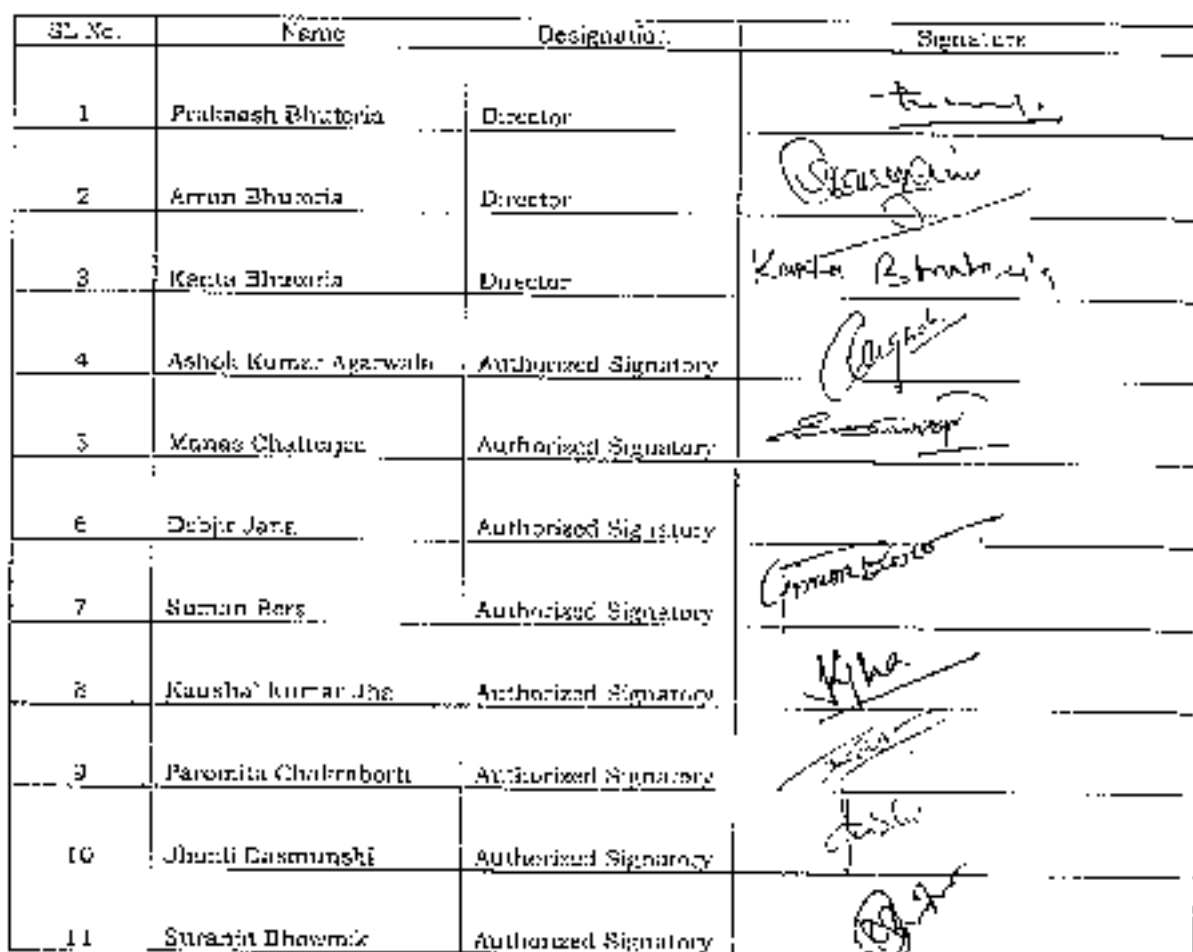 SL No. Name Designation Signature
1 Prakaash Bhutoria Director
2 Arrun Bhutoria Director
3 Kanta Bhutoria Director
Kanta Bhutoria
4 Ashok Kumar Agarwala Authorized Signatory
5 Manas Chatterjee Authorized Signatory
6 Debjit Jana Authorized Signatory
7 Suman Bera Authorized Signatory
8 Kaushal kumar Jha Authorized Signatory
KJha
9 Paromita Chakraborti Authorized Signatory
10 Jhunli Dasmunshi Authorized Signatory
11 Suranjit Bhowmik Authorized Signatory